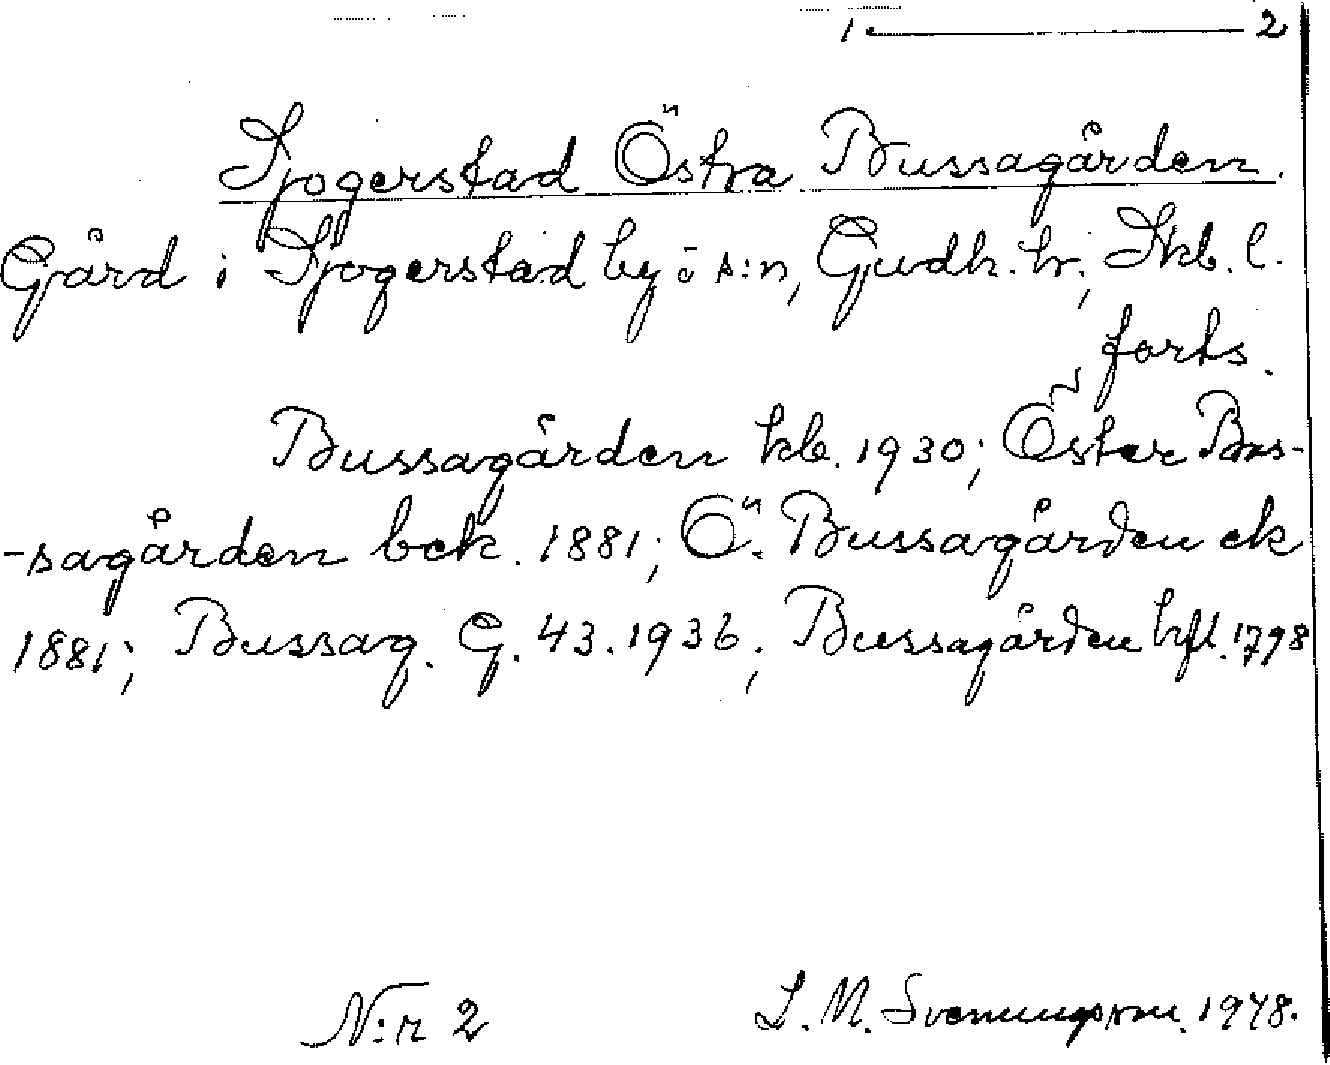 1 ——— 2
Sjogerstad Östra Bussagården.
Gård i Sjogerstad by o s:n, Gudh. hr, Skb. l.
forts.
Bussagården kb. 1930; Öster Bus-
-sagården bek. 1881; Ö. Bussagården ek
1881; Bussag. G. 43. 1936; Bussagården hfl. 1798
N:r 2
L. M. Svenungsson. 1948.